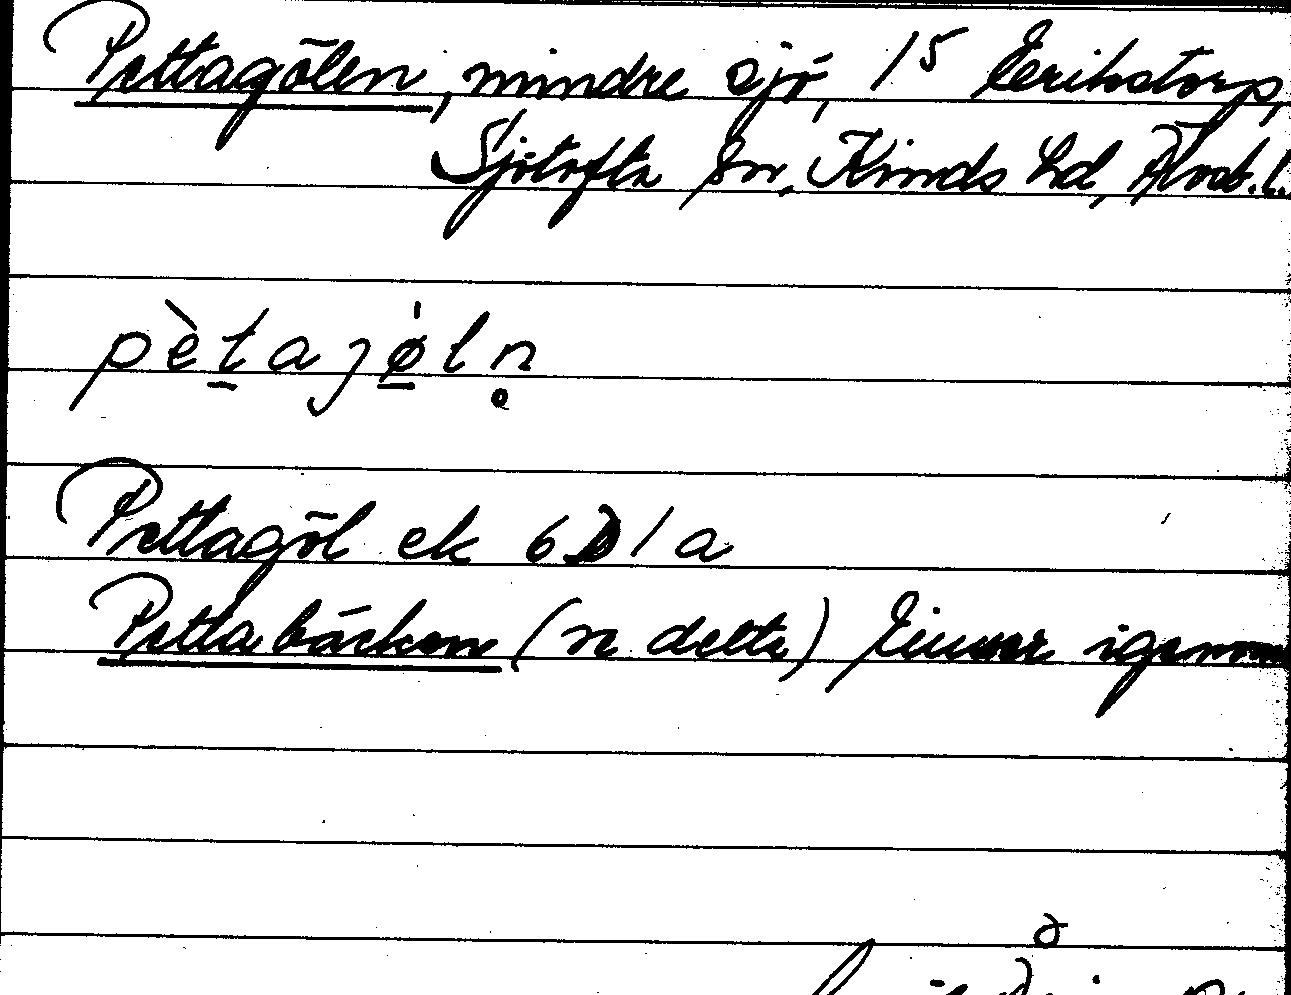 Pettagölen, mindre sjö, 15 Erikstorp,
Sjötofta sn, Kinds hd, Älvsb.l.
pètajø̀ln̥
Pettagöl ek 6D1a
Pettabäcken (se detta) rinner igenom